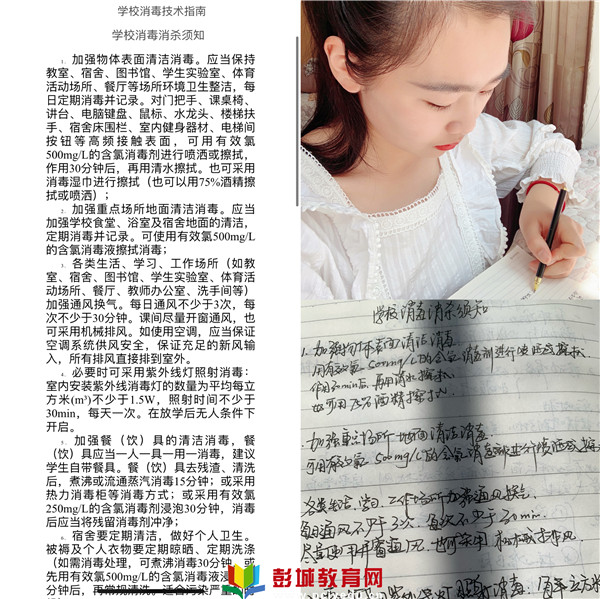 学校消毒技术指南
学校消毒消杀须知
1. 加强物体表面清洁消毒。应当保持
教室、宿舍、图书馆、学生实验室、体育
活动场所、餐厅等场所环境卫生整洁，每
日定期消毒并记录。对门把手、课桌椅、
讲台、电脑键盘、鼠标、水龙头、楼梯扶
手、宿舍床围栏、室内健身器材、电梯间
按钮等高频接触表面，可用有效氯
500mg/L的含氯消毒剂进行喷洒或擦拭，
作用30分钟后，再用清水擦拭。也可采用
消毒湿巾进行擦拭（也可以用75%酒精擦
拭或喷洒）；
2. 加强重点场所地面清洁消毒。应当
加强学校食堂、浴室及宿舍地面的清洁，
定期消毒并记录。可使用有效氯500mg/L
的含氯消毒液擦拭消毒；
3. 各类生活、学习、工作场所（如教
室、宿舍、图书馆、学生实验室、体育活
动场所、餐厅、教师办公室、洗手间等）
加强通风换气。每日通风不少于3次，每
次不少于30分钟。课间尽量开窗通风，也
可采用机械排风。如使用空调，应当保证
空调系统供风安全，保证充足的新风输
入，所有排风直接排到室外。
4. 必要时可采用紫外线灯照射消毒：
室内安装紫外线消毒灯的数量为平均每立
方米(m³)不少于1.5W，照射时间不少于
30min，每天一次。在放学后无人条件下
开启。
5. 加强餐（饮）具的清洁消毒，餐
（饮）具应当一人一具一用一消毒，建议
学生自带餐具。餐（饮）具去残渣、清洗
后，煮沸或流通蒸汽消毒15分钟；或采用
热力消毒柜等消毒方式；或采用有效氯
250mg/L的含氯消毒剂浸泡30分钟，消毒
后应当将残留消毒剂冲净；
6. 宿舍要定期清洁，做好个人卫生。
被褥及个人衣物要定期晾晒、定期洗涤
（如需消毒处理，可煮沸消毒30分钟，或
先用有效氯500mg/L的含氯消毒液浸
分钟后，再常规清洗。适合污染严重
学校消毒消杀须知
1. 加强物体表面清洁消毒
用有效氯500mg/L的含氯消毒剂进行喷洒或擦拭
作用30min后，再用清水擦拭.
也可用75%酒精擦拭.
2. 加强重点场所地面清洁消毒
可用有效氯500mg/L的含氯消毒
各类生活、学习、工作场所加强通风换气.
每日通风不少于3次，每次不少于30min.
尽量使用开窗通风，也可采用机械排风
灯照射消毒:
彭城教育网